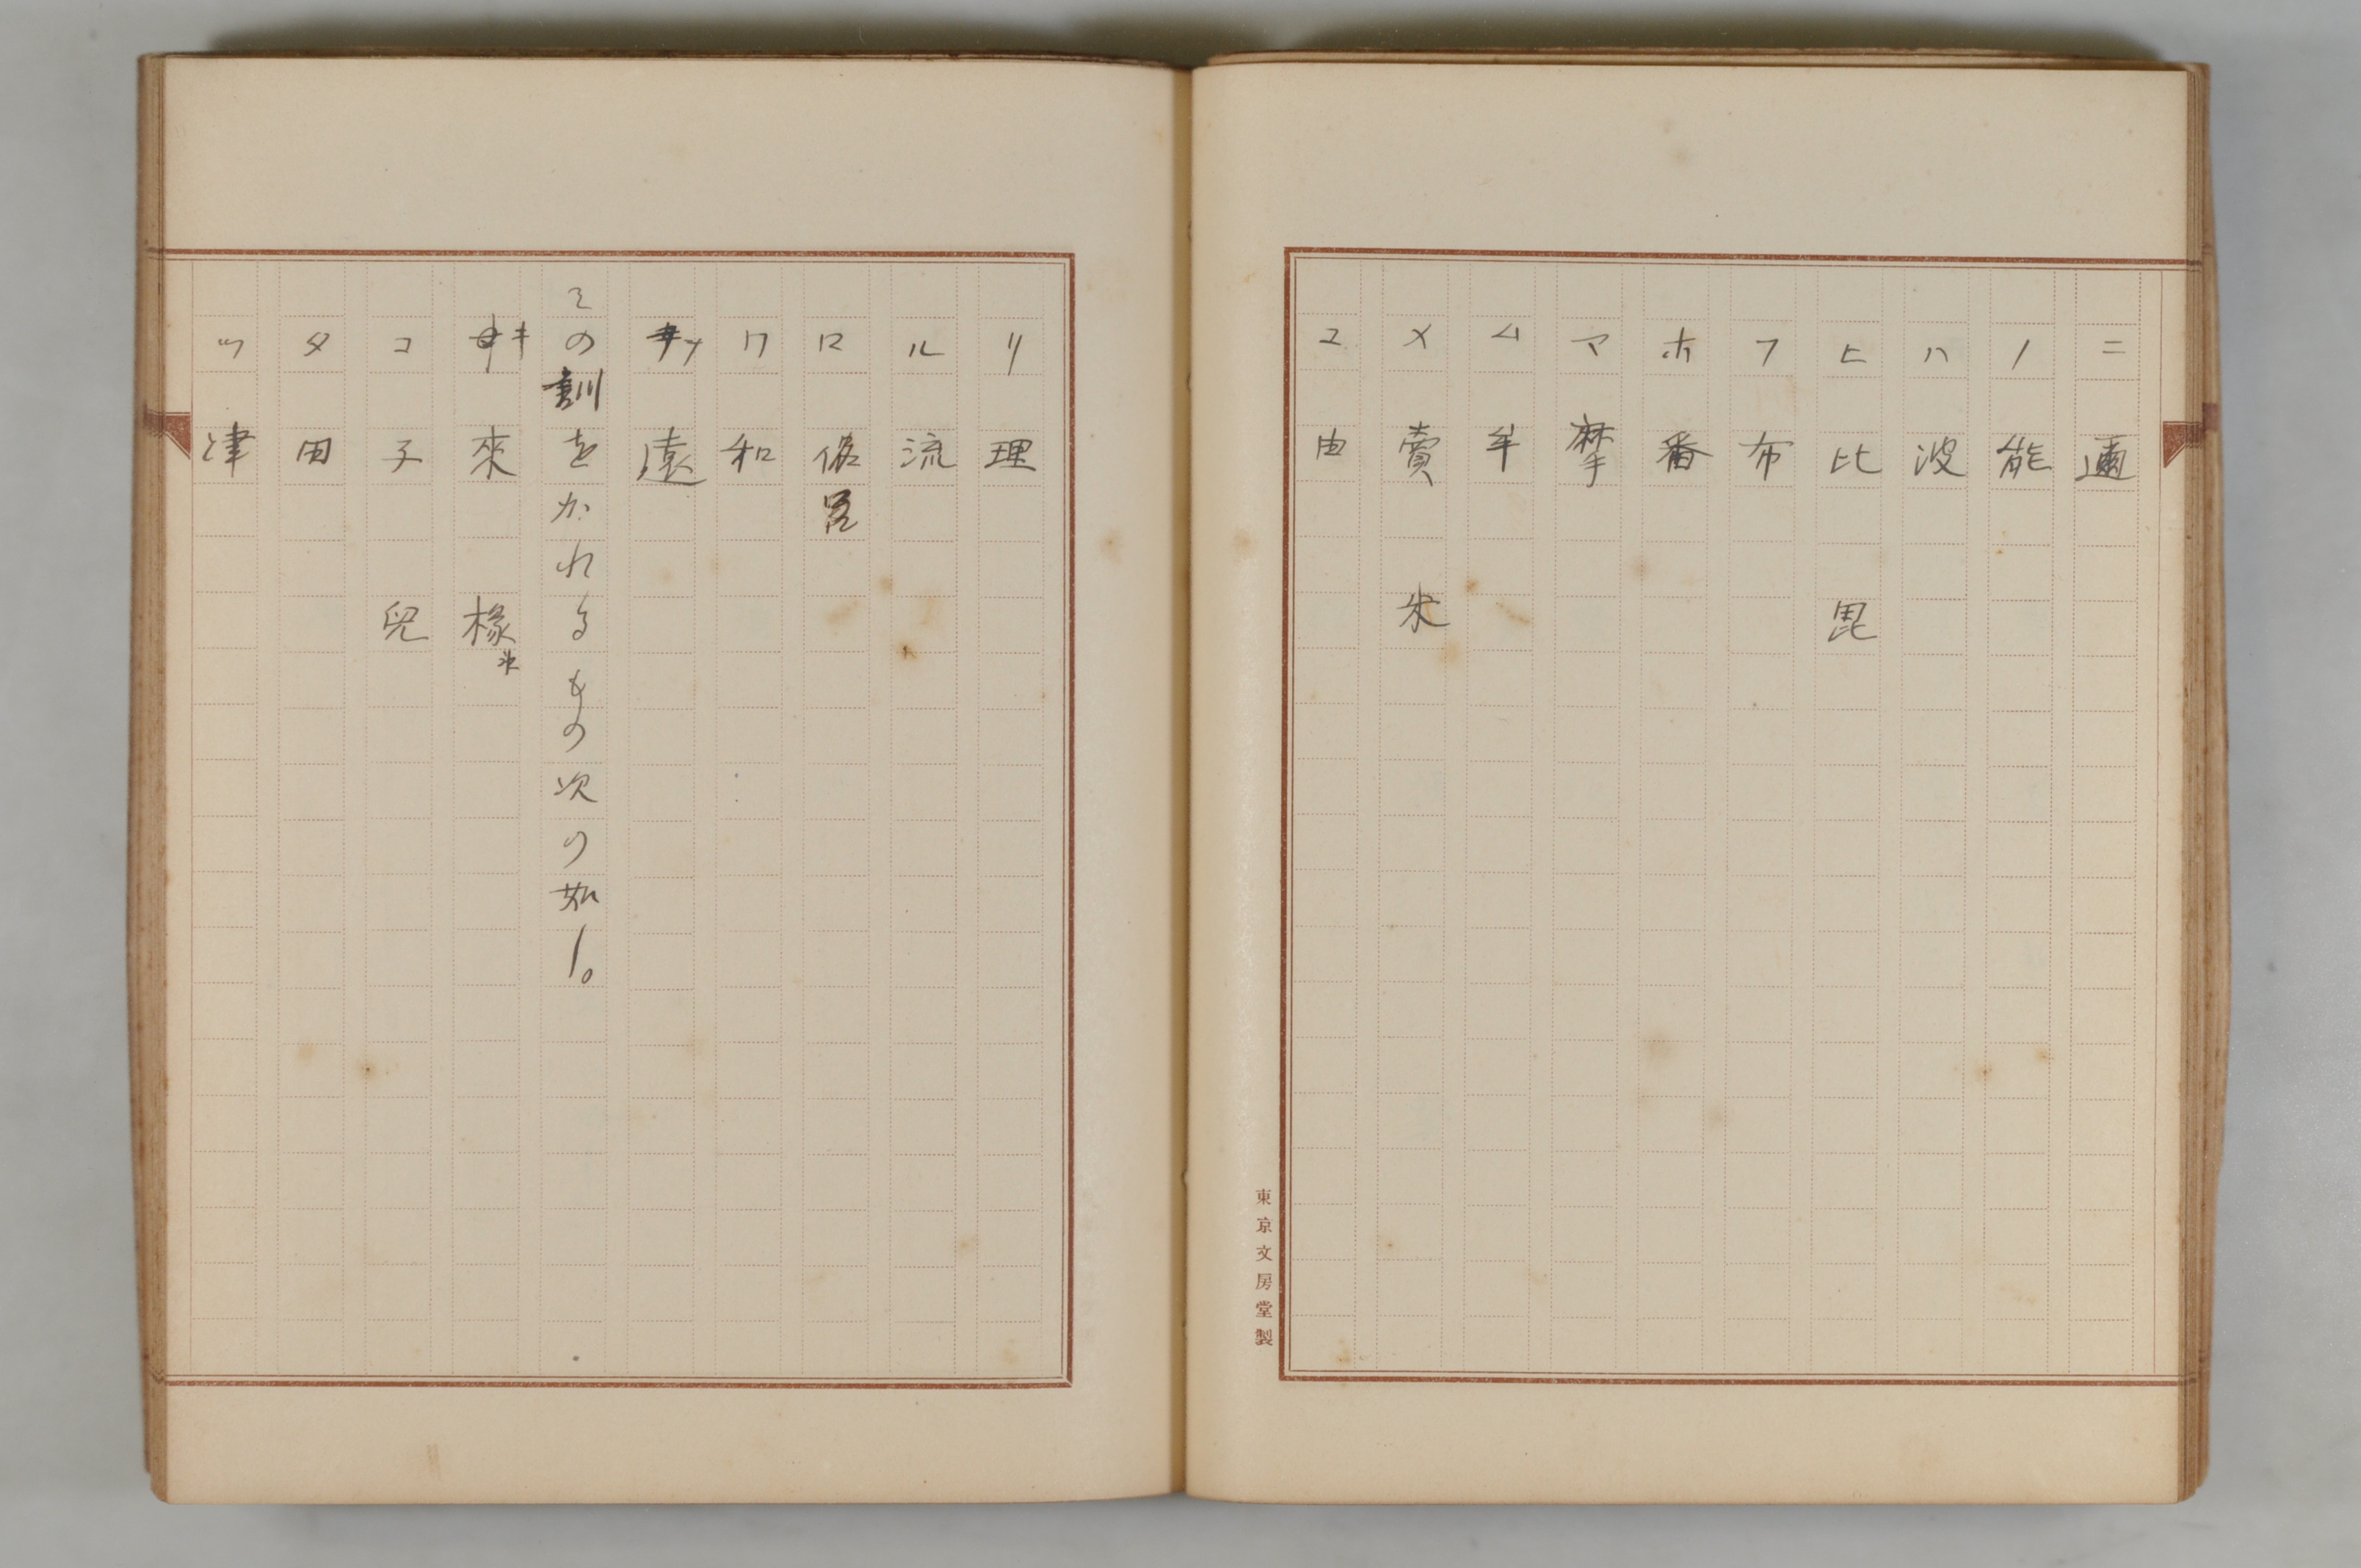 ニ 邇
ノ 能
ハ 波
ヒ 比 毘
フ 布
ホ 番
マ 摩
ム 牟
メ 賣 米
ユ 由
東京文房堂製
リ 理
ル 流
ロ 呂
ワ 和
ヲ 遠
その訓をかれるもの次の如し。
キ 來 椽
コ 子 兒
タ 田
ツ 津